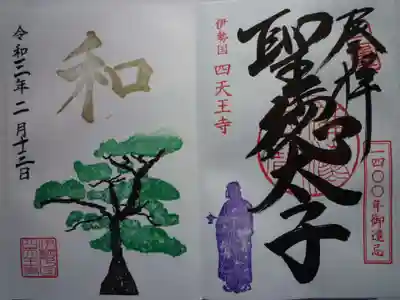 奉拝
聖徳太子
伊勢国 四天王寺
一四〇〇年御遠忌
和
令和三年二月十三日